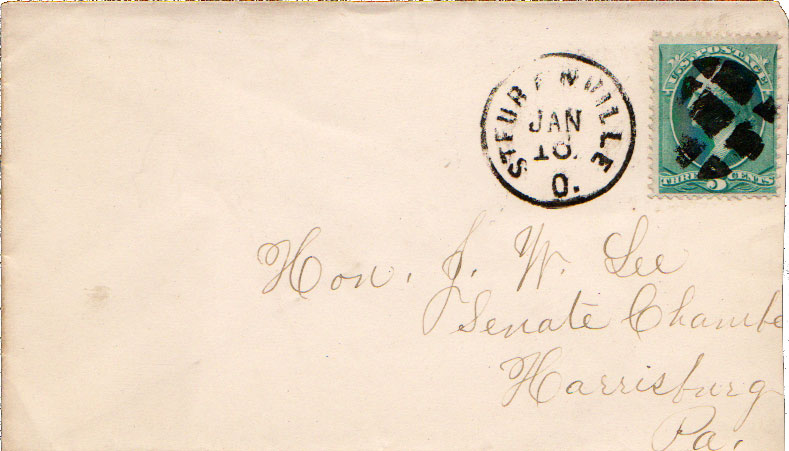 STEUBENVILLE
JAN
18
O.
U.S. POSTAGE
THREE 3 CENTS
Hon. J. W. Lee
Senate Chambe
Harrisburg
Pa.